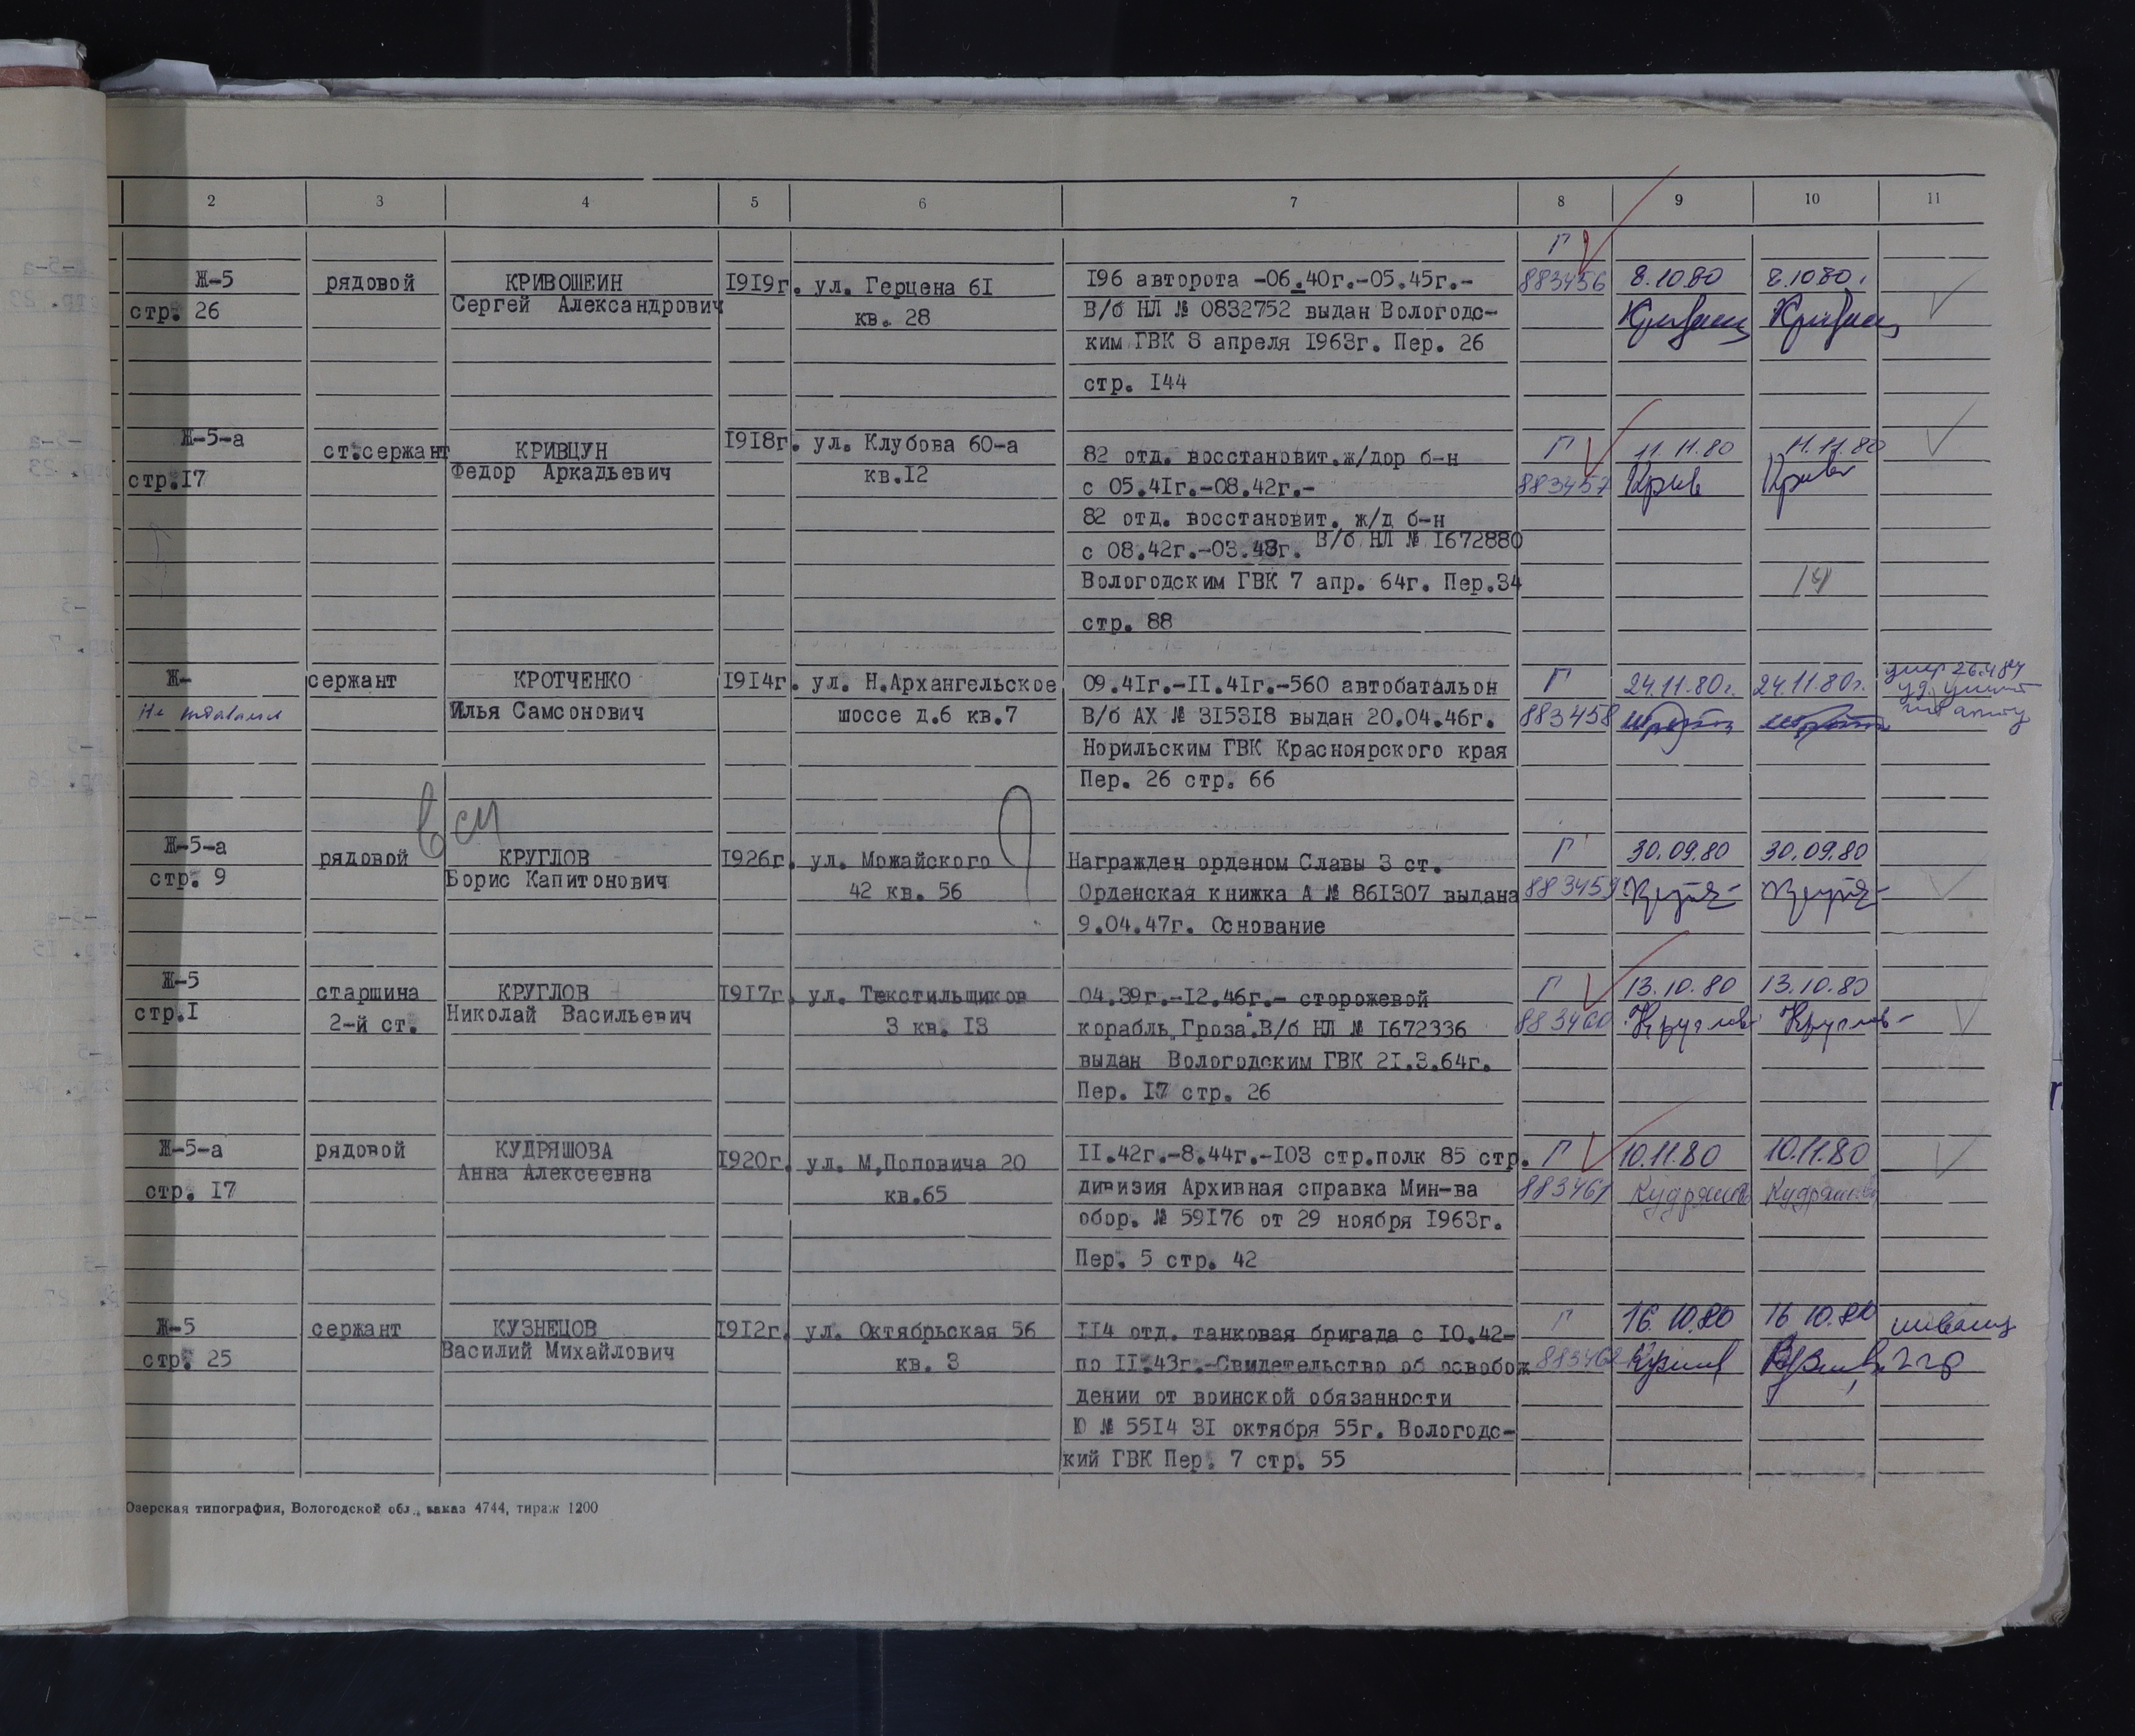 2 3 4 5 6 7 8 9 10 11
Г
Ж-5 рядовой КРИВОШЕИН 1919г. ул. Герцена 61 196 авторота -06.40г.-05.45г.- 883456 8.10.80 8.10.80г.
стр. 26 Сергей Александрович кв. 28 В/б НЛ № 0832752 выдан Вологодс-
ким ГВК 8 апреля 1963г. Пер. 26
стр. 144
Ж-5-а ст.сержант КРИВЦУН 1918г. ул. Клубова 60-а 82 отд. восстановит.ж/дор б-н Г 11.11.80 11.11.80
стр.17 Федор Аркадьевич кв.12 с 05.41г.-08.42г.- 883457 Крив Криве
82 отд. восстановит. ж/д б-н
с 08.42г.-03.43г. В/б НЛ № 1672880
Вологодским ГВК 7 апр. 64г. Пер.34
стр. 88
Ж- сержант КРОТЧЕНКО 1914г. ул. Н.Архангельское 09.41г.-11.41г.-560 автобатальон Г 24.11.80г. 24.11.80г.
Не Илья Самсонович шоссе д.6 кв.7 В/б АХ № 315318 выдан 20.04.46г. 883458
Норильским ГВК Красноярского края
Пер. 26 стр. 66
Ж-5-а рядовой КРУГЛОВ 1926г. ул. Можайского Награжден орденом Славы 3 ст. Г 30.09.80 30.09.80
стр. 9 Борис Капитонович 42 кв. 56 Орденская книжка А № 861307 выдана 883459
9.04.47г. Основание
Ж-5 старшина КРУГЛОВ 1917г. ул. Текстильщиков 04.39г.-12.46г.- сторожевой Г 13.10.80 13.10.80
стр.1 2-й ст. Николай Васильевич 3 кв. 13 корабль"Гроза".В/б НЛ № 1672336 883460 Круглов Круглов
выдан Вологодским ГВК 21.3.64г.
Пер. 17 стр. 26
Ж-5-а рядовой КУДРЯШОВА 1920г. ул. М.Поповича 20 11.42г.-8.44г.-103 стр.полк 85 стр. Г 10.11.80 10.11.80
стр. 17 Анна Алексеевна кв.65 дивизия Архивная справка Мин-ва 883461 Кудряшова Кудряшова
обор. № 59176 от 29 ноября 1963г.
Пер. 5 стр. 42
Ж-5 сержант КУЗНЕЦОВ 1912г. ул. Октябрьская 56 114 отд. танковая бригада с 10.42- Г 16.10.80 16 10.80 инвалид
стр. 25 Василий Михайлович кв. 3 по 11.43г.-Свидетельство об освобож 883462 2 гр
дении от воинской обязанности
Ю № 5514 31 октября 55г. Вологодс-
кий ГВК Пер. 7 стр. 55
Озерская типография, Вологодской обл., заказ 4744, тираж 1200